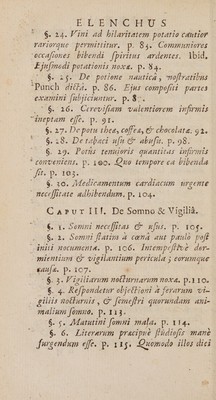 ELENCHUS
§. 24. Vini ad hilaritatem potatio cautior
rariorque permittitur. p. 85. Communiores
occasiones bibendi spiritus ardentes. Ibid.
Ejusmodi potationis noxæ. p. 84.
§. 25. De potione nauticâ, nostratibus
Punch dictâ. p. 86. Ejus compositi partes
examini subjiciuntur. p. 8
§. 26. Cerevisiam valentiorem infirmis
ineptam esse. p. 91.
§. 27. De potu thea, coffea, & chocolata. 92.
§. 28. De tabaci usu & abusu. p. 98.
§. 29. Potûs tenuioris quantitas infirmis
conveniens. p. 100. Quo tempore ea bibenda
sit. p. 103.
§. 30. Medicamentum cardiacum urgente
necessitate adhibendum. p. 104.
CAPUT III. De Somno & Vigiliâ.
§. 1. Somni necessitas & usus. p. 105.
§. 2. Somni statim a cœnâ aut paulò post
initi nocumenta. p. 106. Intempestivè dor-
mientium & vigilantium pericula; eorumque
causæ. p. 107.
§. 3. Vigiliarum nocturnarum noxæ. p. 110.
§. 4. Respondetur objectioni à ferarum vi-
giliis nocturnis, & semestri quorundam ani-
malium somno. p. 113.
§. 5. Matutini somni mala. p. 114.
§. 6. Literarum præcipuè studiosis manè
surgendum esse. p. 115. Quomodo illos dici